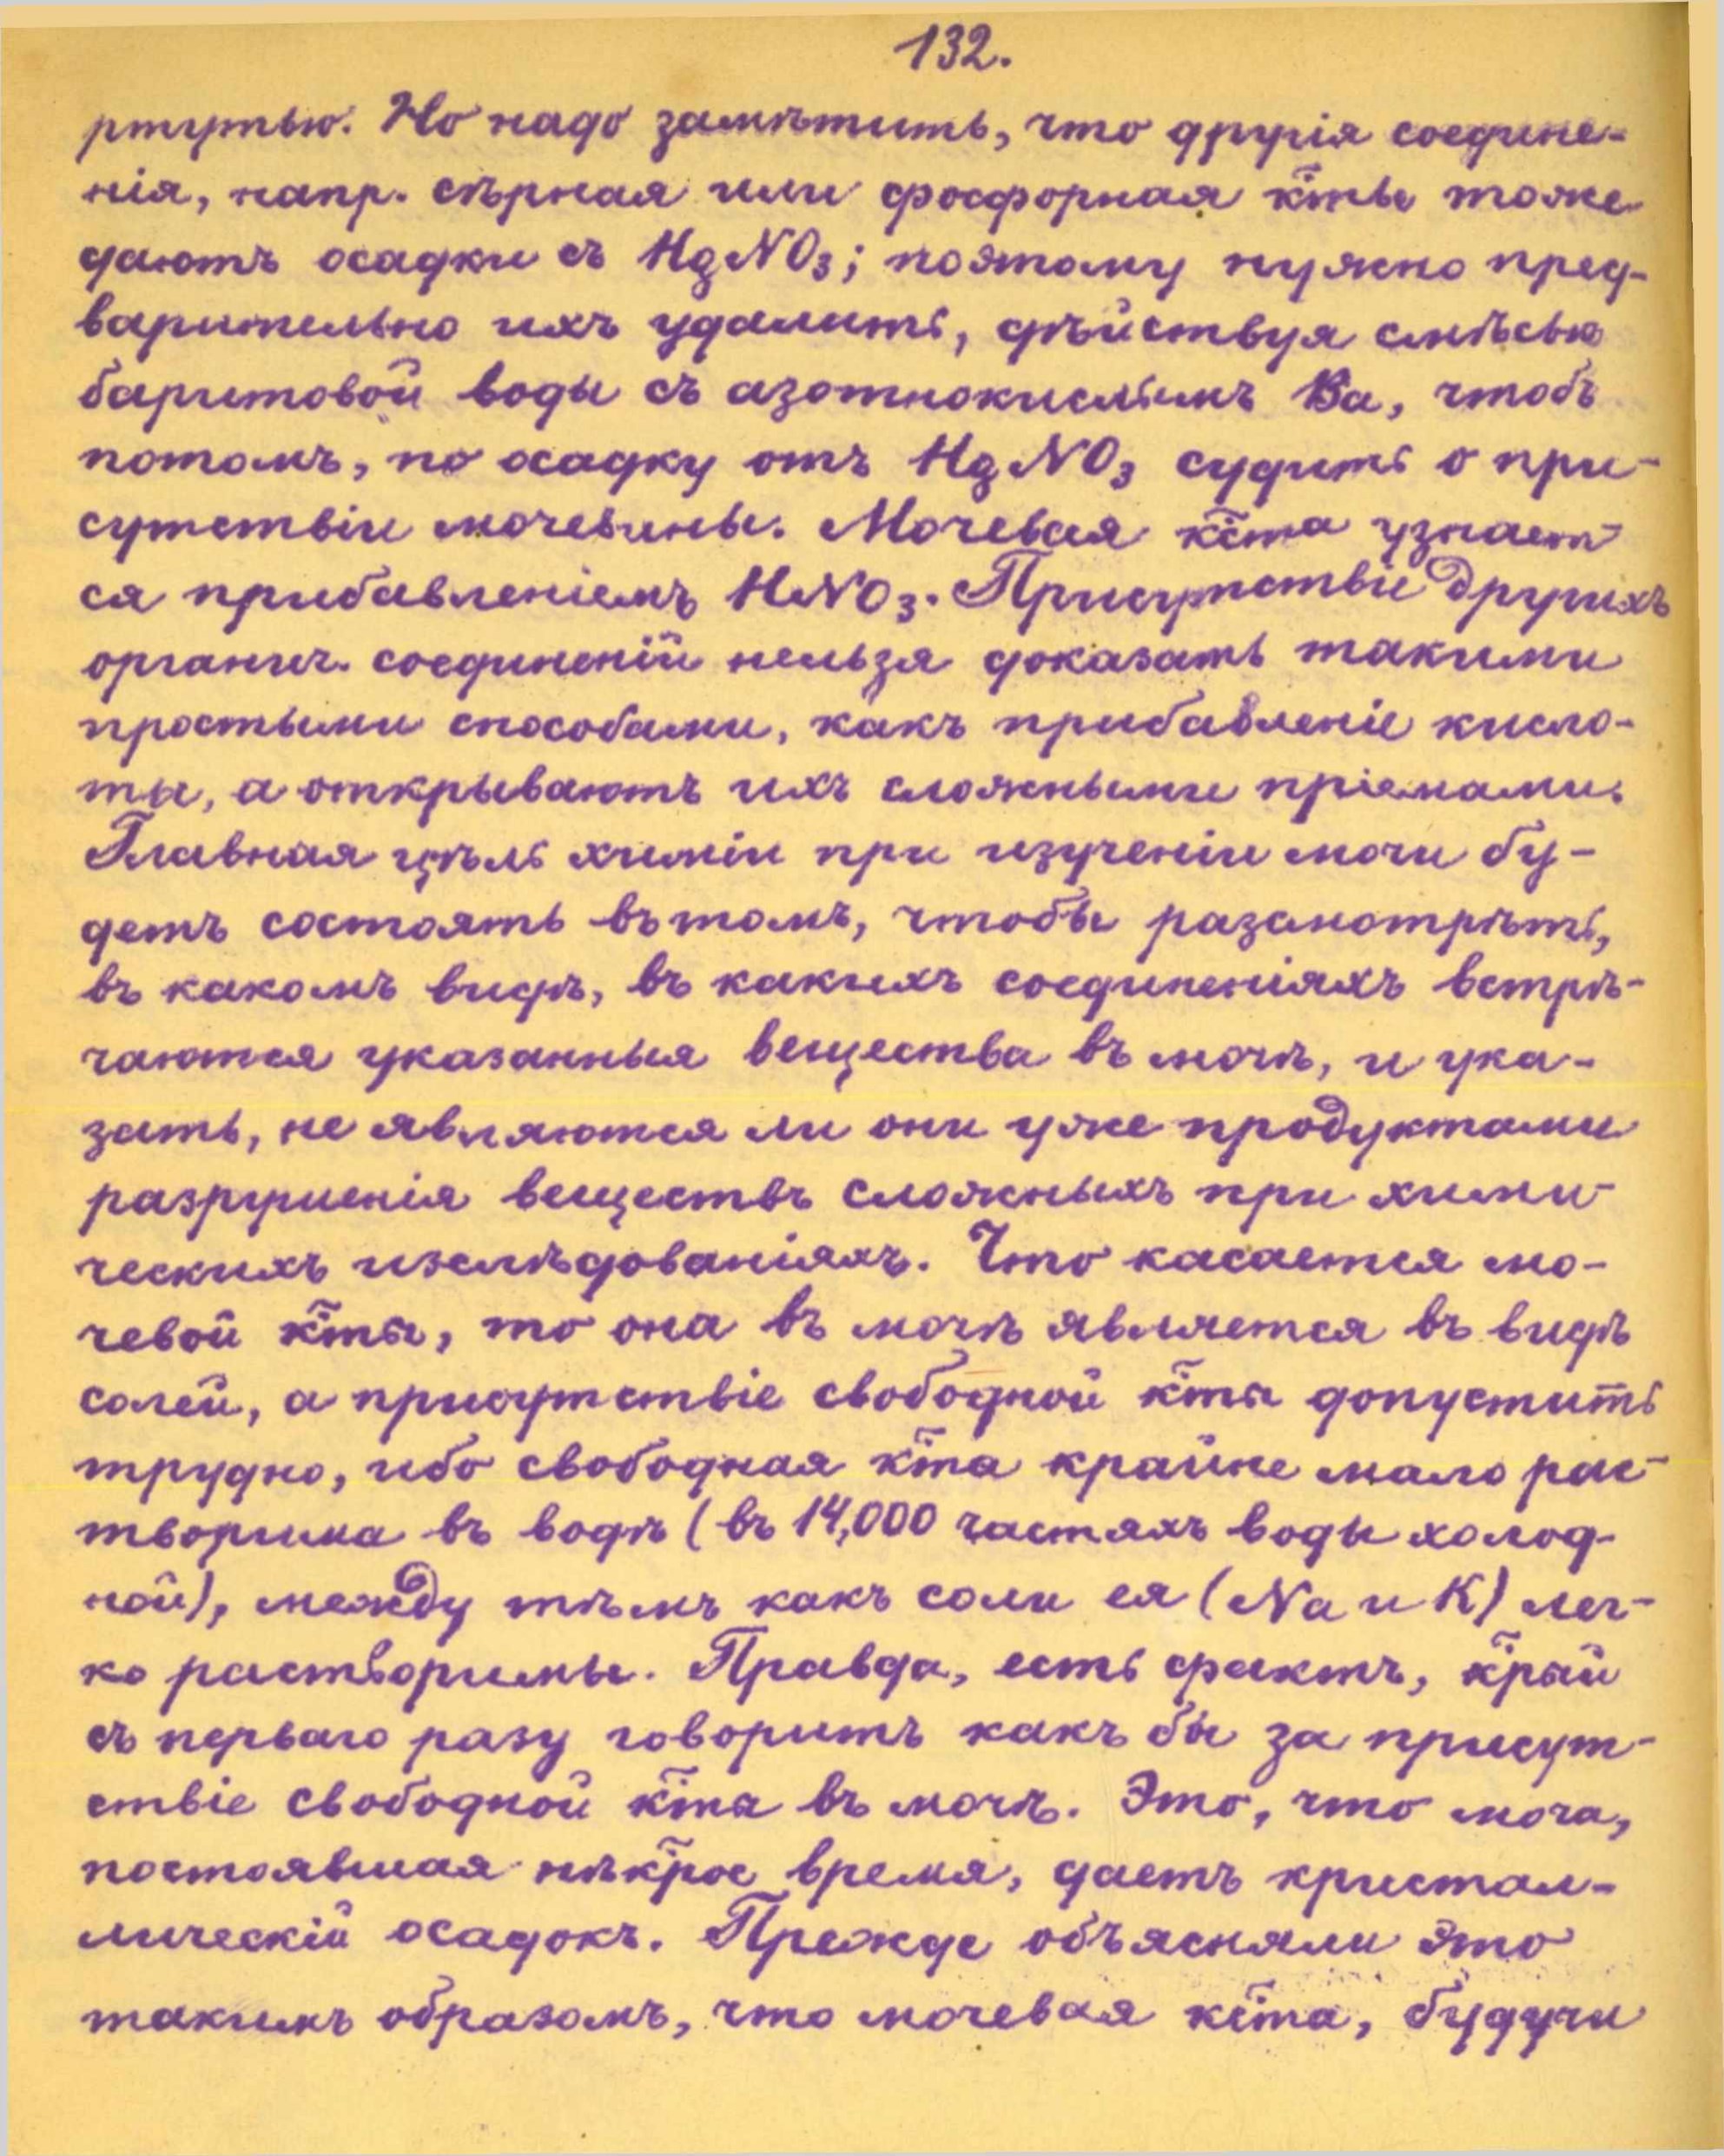 132.
ртутью. Но надо замѣтить, что другія соедине-
нія, напр. сѣрная или фосфорная к̃ты тоже
даютъ осадки съ HgNO₃; поэтому нужно пред-
варительно ихъ удалить, дѣйствуя смѣсью
баритовой воды съ азотнокислымъ Ba, чтобъ
потомъ, по осадку отъ HgNO₃ судить о при-
сутствіи мочевины. Мочевая к̃ста узнает-
ся прибавленіемъ HNO₃. Присутствіе другихъ
органич. соединеній нельзя доказать такими
простыми способами, какъ прибавленіе кисло-
ты, а открываютъ ихъ сложными пріемами.
Главная цѣль химіи при изученіи мочи бу-
детъ состоять въ томъ, чтобы разсмотрѣть,
въ какомъ видѣ, въ какихъ соединеніяхъ встрѣ-
чаются указанныя вещества въ мочѣ, и ука-
зать, не являются ли они уже продуктами
разрушенія веществъ сложныхъ при хими-
ческихъ изслѣдованіяхъ. Что касается мо-
чевой к̃ты, то она въ мочѣ является въ видѣ
солей, а присутствіе свободной к̃ты допустить
трудно, ибо свободная к̃та крайне мало рас-
творима въ водѣ (въ 14,000 частяхъ воды холод-
ной), между тѣмъ какъ соли ея (Na и K) лег-
ко растворимы. Правда, есть фактъ, к̃рый
съ перваго разу говоритъ какъ бы за присут-
ствіе свободной к̃ты въ мочѣ. Это, что моча,
постоявшая нѣк̃рое время, даетъ кристал-
лическій осадокъ. Прежде объясняли это
такимъ образомъ, что мочевая к̃ста, будучи